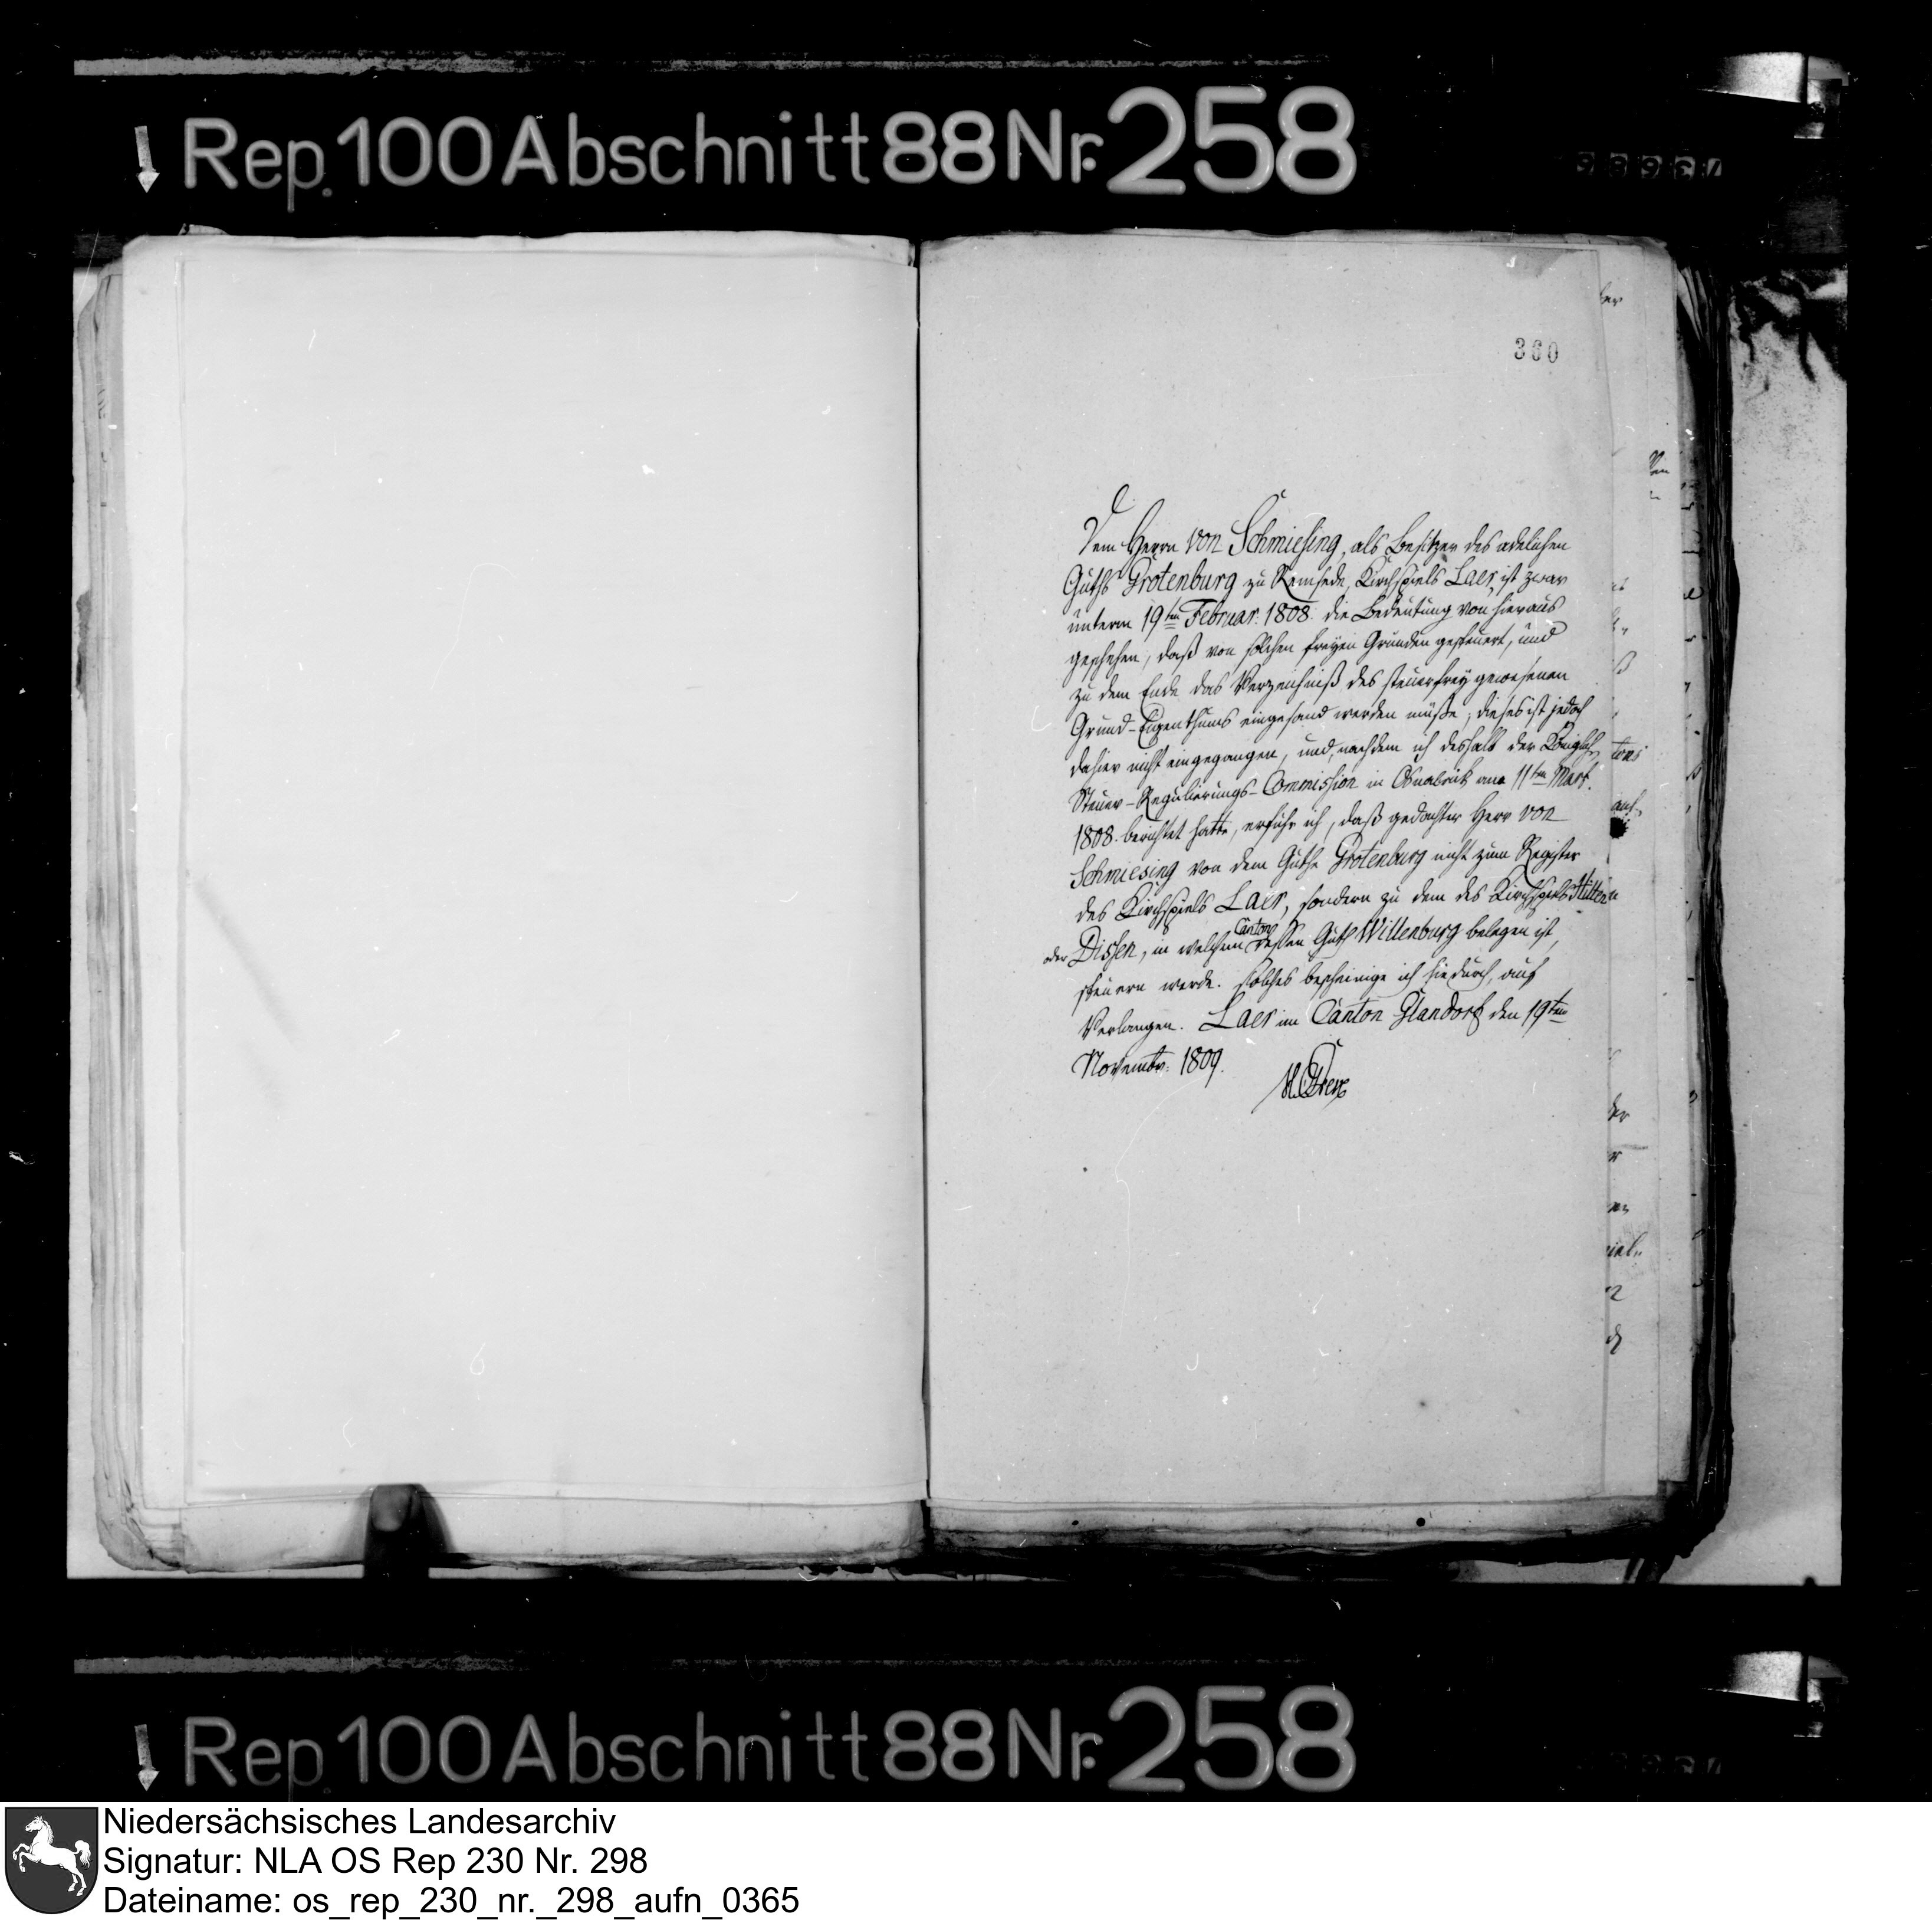 Rep. 100 Abschnitt 88 Nr. 258
360
Dem Herrn von Schmiesing, als Besitzer des adelichen
Guths Grotenburg zu Remsede, Kirchspiels Laer, ist zwar
unterm 19ten Februar. 1808. die Bedeutung von hieraus
geschehen, daß von solchen freyen Grunden gesteuert, und
zu dem Ende das Verzeichniß des steuerfrey gewesenen
Grund-Eigenthums eingesand werden müße; dieses ist jedoch
dahier nicht eingegangen, und, nachdem ich deshalb der Königlich
Steuer-Regulierungs-Commission in Osnabrück am 11ten Mart.
1808. berichtet hatte, erfuhr ich, daß gedachter Herr von
Schmiesing von dem Guthe Grotenburg nicht zum Register
des Kirchspiels Laer, sondern zu dem des Kirchspiels Hilter
oder Dissen, in welchem Canton dessen Guth Willenburg belegen ist,
steuern werde. solches bescheinige ich hiedurch, auf
Verlangen. Laer im Canton Glandorf den 19ten
Novembr. 1809.
Rep. 100 Abschnitt 88 Nr. 258
Niedersächsisches Landesarchiv
Signatur: NLA OS Rep 230 Nr. 298
Dateiname: os_rep_230_nr._298_aufn_0365